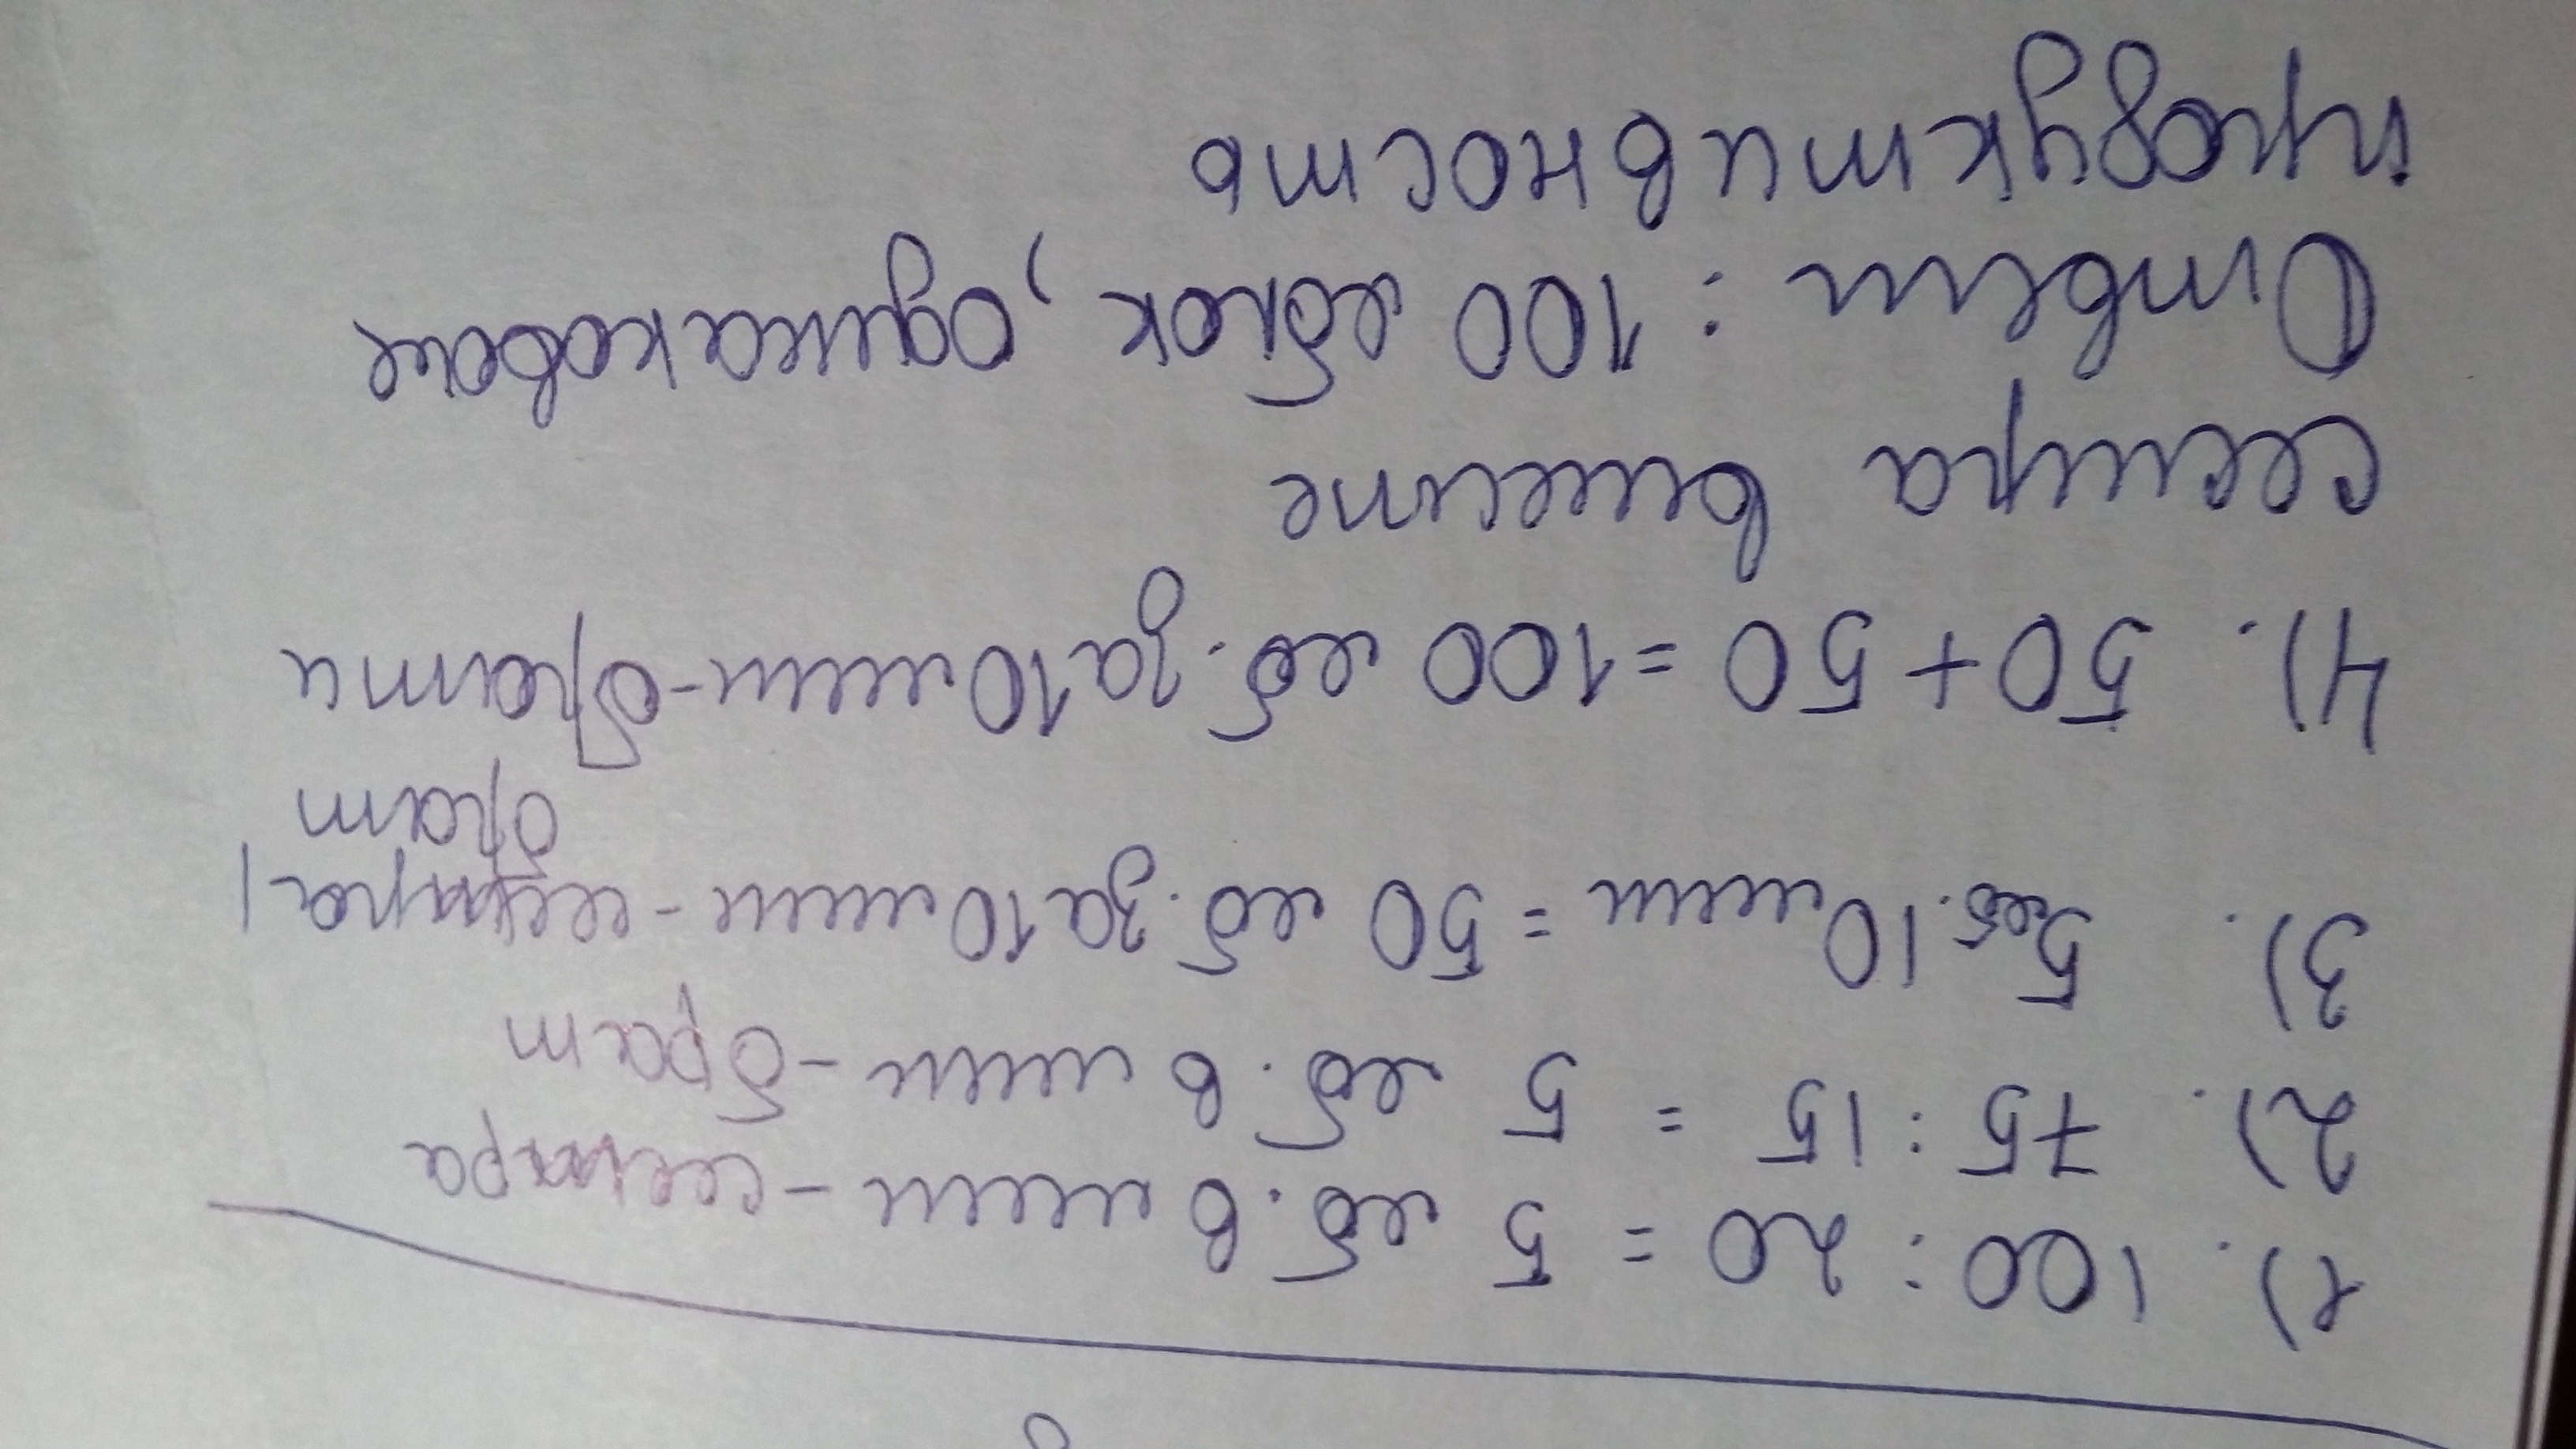 1). 100 : 20 = 5 яб. в мин - сестра
2). 75 : 15 = 5 яб. в мин - брат
3). 5яб. 10 мин = 50 яб. за 10 мин - сестра
брат
4). 50 + 50 = 100 яб. за 10 мин - брат и
сестра вместе
Ответ : 100 яблок, одинаковая
продуктивность